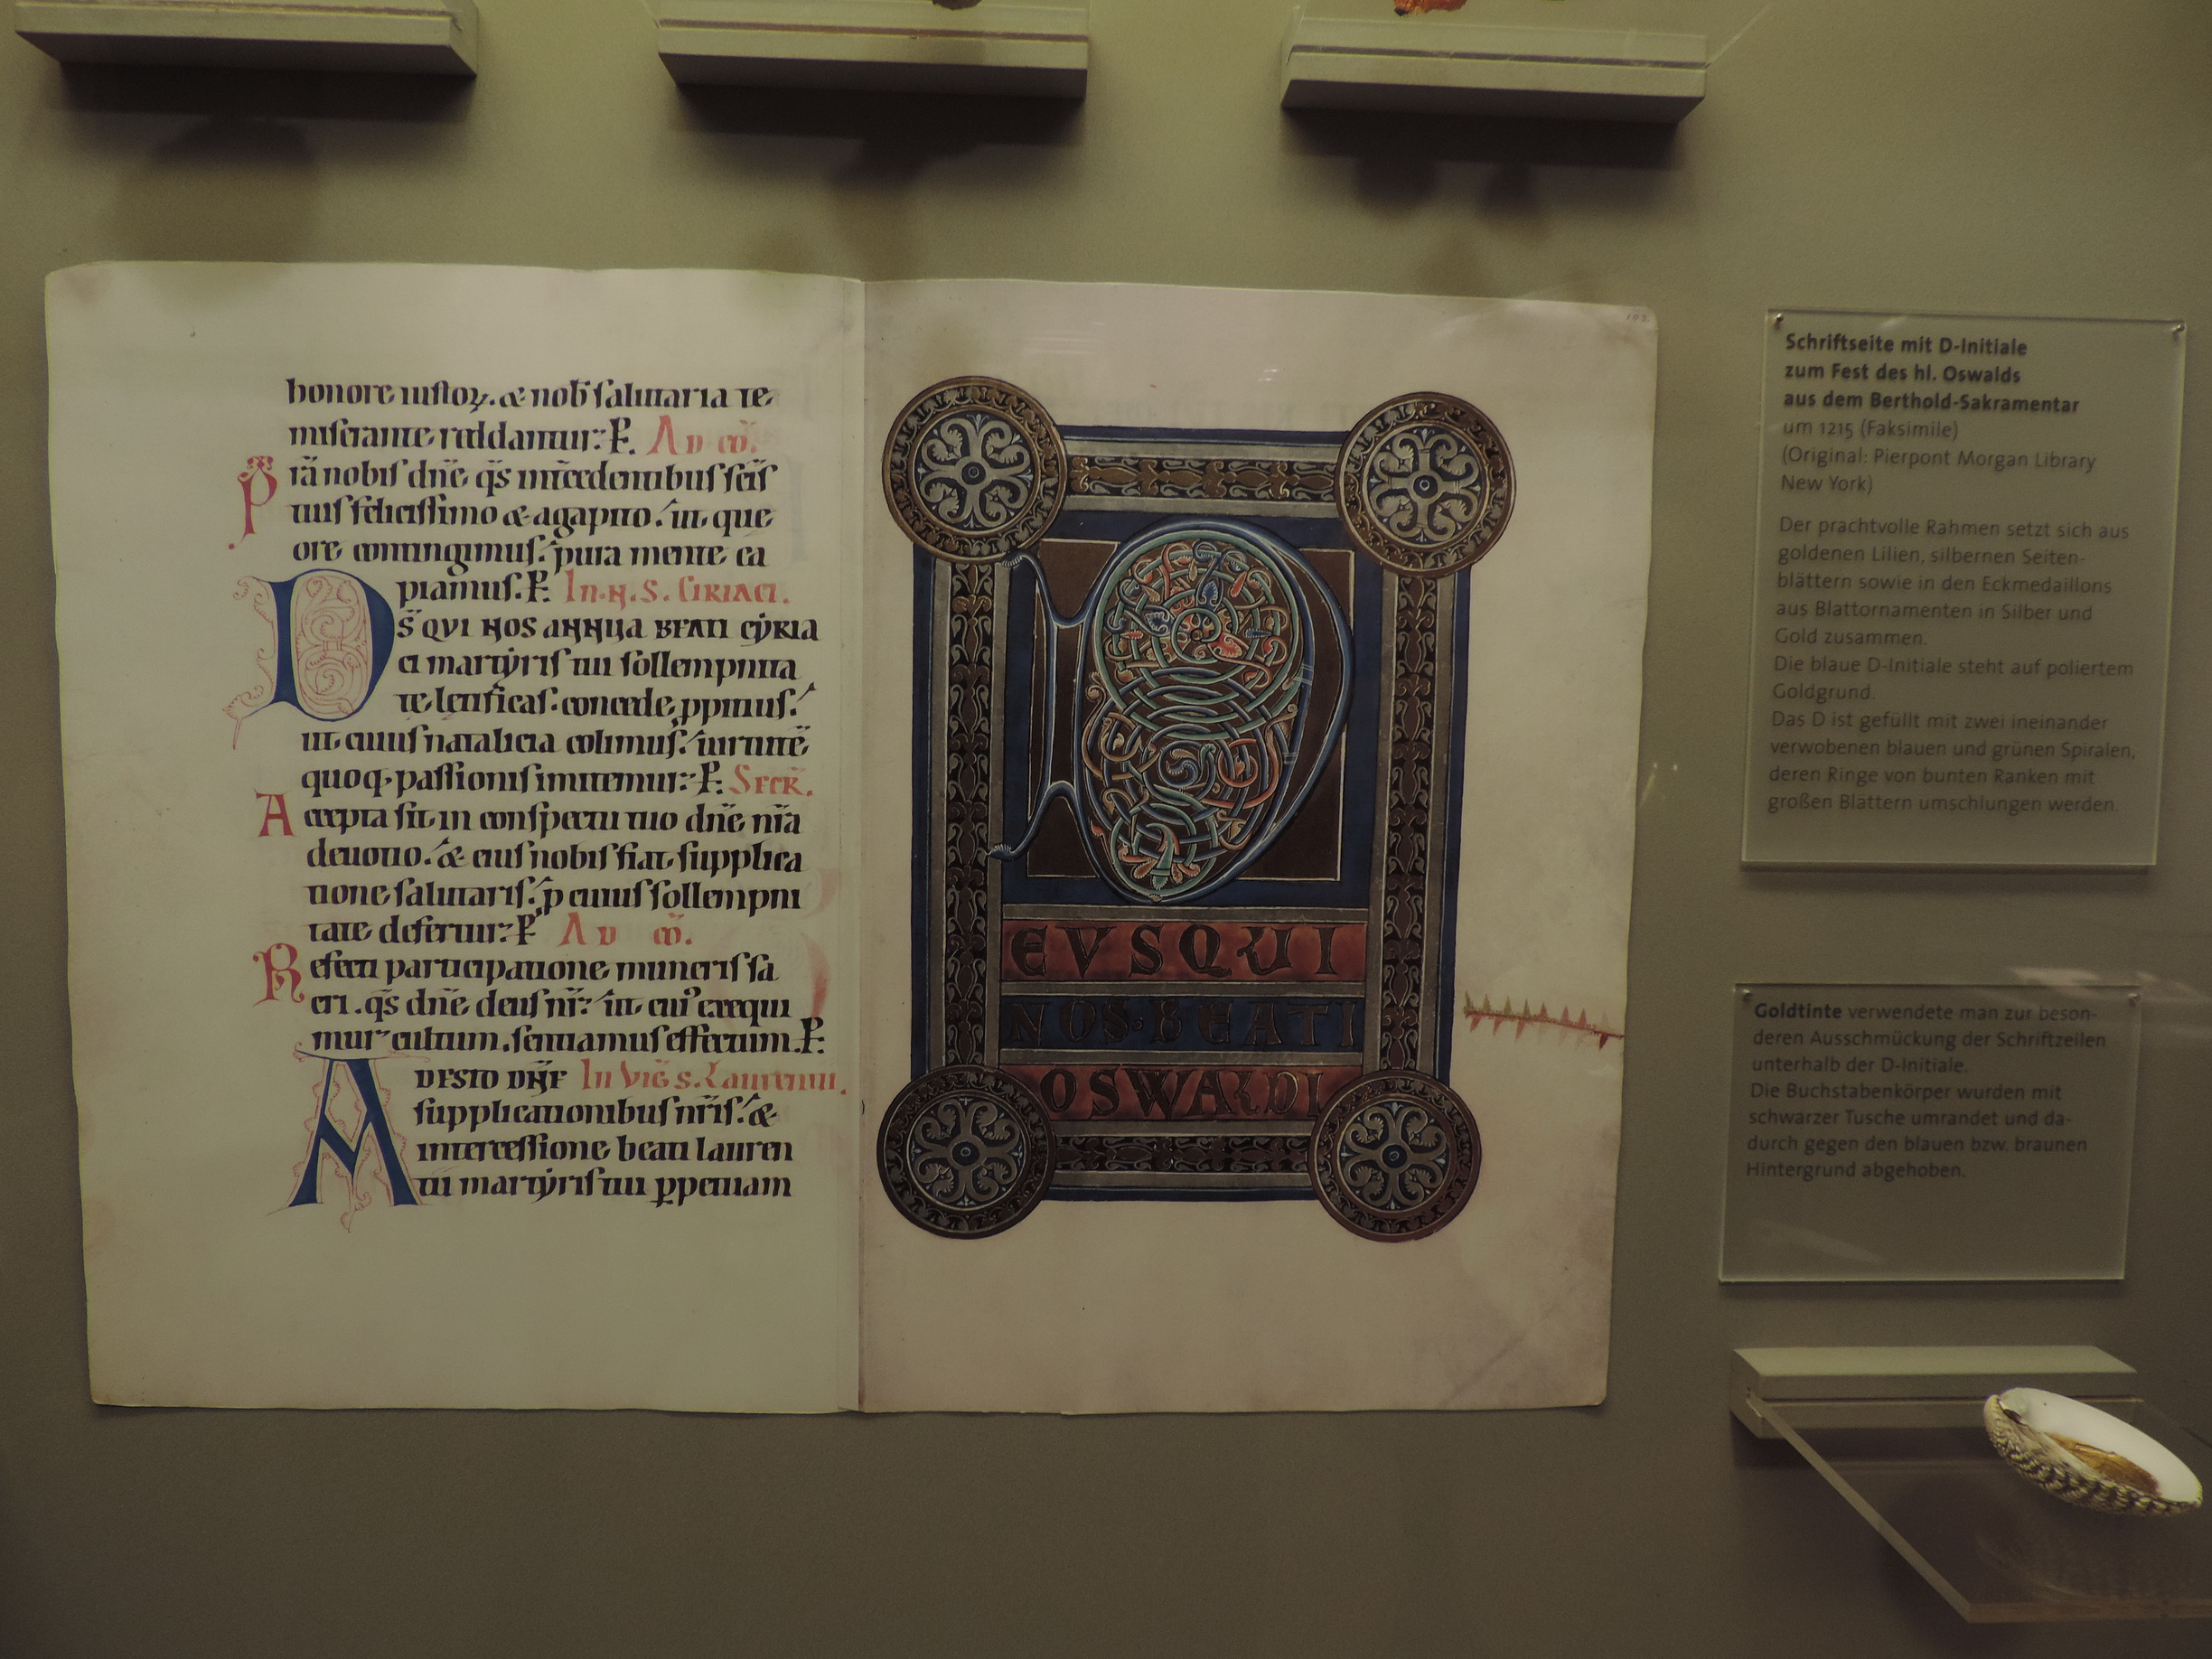 honore iustoꝝ. & nob̄ salutaria te
miserante reddantur: P̱. Ad co̅.
Prã nobis dn̄e q̄s intercedentibus sc̄is
tuis felicissimo & agapito. ut que
ore contingimus. pura mente ca
piamus. P̱. In .N. S. CIRIACI.
DS̄ QVI NOS ANNUA BEATI CẏRIA
ci martẏris tui sollempnita
te letificas. concede ꝓpitius.
ut cuius natalicia colimus. uirtutē
quoq; passionis imitemur: P̱. SECR̄.
Accepta sit in conspectu tuo dn̄e nr̄a
deuotio. & eius nobis fiat supplica
tione salutaris. p cuius sollempni
tate defertur: P̱ Ad co̅.
Refecti participatione muneris sa
cri. q̄s dn̄e deus nr̄: ut cui᾽ exequi
mur cultum. sentiamus effectum. P̱.
ADESTO DN̄E In Vig̅ s. Laurentii.
supplicationibus nr̄is. &
intercessione beati lauren
tii martẏris tui ꝑpetuam
102
D
EVS QUI
NOS·BEATI
OSWALDI
Schriftseite mit D-Initiale
zum Fest des hl. Oswalds
aus dem Berthold-Sakramentar
um 1215 (Faksimile)
(Original: Pierpont Morgan Library
New York)
Der prachtvolle Rahmen setzt sich aus
goldenen Lilien, silbernen Seiten-
blättern sowie in den Eckmedaillons
aus Blattornamenten in Silber und
Gold zusammen.
Die blaue D-Initiale steht auf poliertem
Goldgrund.
Das D ist gefüllt mit zwei ineinander
verwobenen blauen und grünen Spiralen,
deren Ringe von bunten Ranken mit
großen Blättern umschlungen werden.
Goldtinte verwendete man zur beson-
deren Ausschmückung der Schriftzeilen
unterhalb der D-Initiale.
Die Buchstabenkörper wurden mit
schwarzer Tusche umrandet und da-
durch gegen den blauen bzw. braunen
Hintergrund abgehoben.